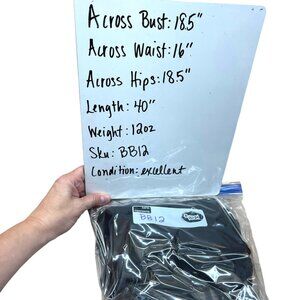 Across Bust: 18.5"
Across Waist: 16"
Across Hips: 18.5"
Length: 40"
Weight: 12oz
Sku: BB12
Condition: excellent
BB12